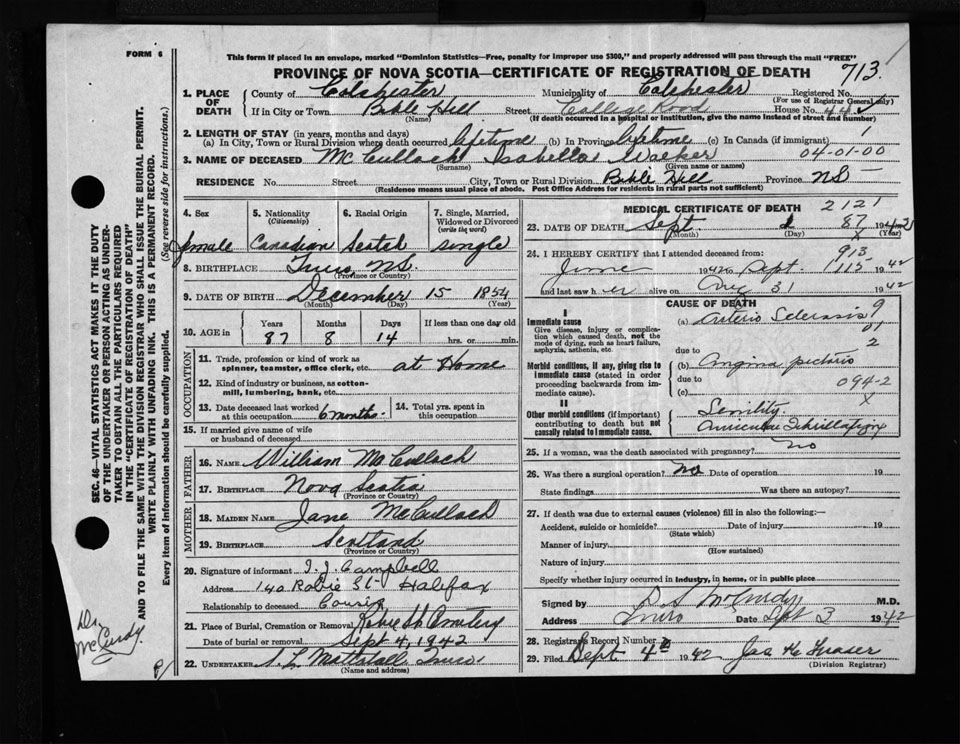 FORM 6
This form if placed in an envelope, marked "Dominion Statistics—Free, penalty for improper use $300," and properly addressed will pass through the mail "FREE"
PROVINCE OF NOVA SCOTIA—CERTIFICATE OF REGISTRATION OF DEATH
713
1. PLACE OF DEATH
County of Colchester Municipality of Colchester Registered No.
(For use of Registrar General only)
If in City or Town Bible Hill Street College Road House No.
(Name) (If death occurred in a hospital or institution, give the name instead of street and number)
2. LENGTH OF STAY (in years, months and days)
(a) In City, Town or Rural Division where death occurred lifetime (b) In Province lifetime (c) In Canada (if immigrant)
3. NAME OF DECEASED McCulloch Isabella Walker 04-01-00
(Surname) (Given name or names)
RESIDENCE No. Street City, Town or Rural Division Bible Hill Province NS
(Residence means usual place of abode. Post Office Address for residents in rural parts not sufficient)
4. Sex female
5. Nationality (Citizenship) Canadian
6. Racial Origin Scotch
7. Single, Married, Widowed or Divorced (write the word) single
8. BIRTHPLACE Truro N.S.
(Province or Country)
9. DATE OF BIRTH December 15 1854
(Month) (Day) (Year)
10. AGE in Years Months Days If less than one day old
87 8 14 hrs. or min.
OCCUPATION
11. Trade, profession or kind of work as spinner, teamster, office clerk, etc. at Home
12. Kind of industry or business, as cotton-mill, lumbering, bank, etc.
13. Date deceased last worked at this occupation 6 months
14. Total yrs. spent in this occupation
15. If married give name of wife or husband of deceased
FATHER
16. NAME William McCulloch
17. BIRTHPLACE Nova Scotia
(Province or Country)
MOTHER
18. MAIDEN NAME Jane McCulloch
19. BIRTHPLACE Scotland
(Province or Country)
20. Signature of informant I. J. Campbell
Address 140 Robie St- Halifax
Relationship to deceased Cousin
21. Place of Burial, Cremation or Removal Robie St. Cemetery
Date of burial or removal Sept 4, 1942
22. UNDERTAKER Mattatall Truro
(Name and address)
MEDICAL CERTIFICATE OF DEATH 2121
23. DATE OF DEATH Sept. 2 87 19
(Month) (Day) (Year)
24. I HEREBY CERTIFY that I attended deceased from: 913
June 1942 to Sept. 115 1942
and last saw her alive on Aug 31 1942
CAUSE OF DEATH
I
Immediate cause
Give disease, injury or complication which caused death, not the mode of dying, such as heart failure, asphyxia, asthenia, etc.
(a) Arterio Sclerosis 9
due to
Morbid conditions, if any, giving rise to immediate cause (stated in order proceeding backwards from immediate cause).
(b) Angina pectoris
due to 094-2
(c) X
II
Other morbid conditions (if important) contributing to death but not causally related to immediate cause.
Senility.
Auricular Fibrillation
25. If a woman, was the death associated with pregnancy? no
26. Was there a surgical operation? no Date of operation 19
State findings Was there an autopsy?
27. If death was due to external causes (violence) fill in also the following:—
Accident, suicide or homicide? Date of injury 19
(State which)
Manner of injury
(How sustained)
Nature of injury
Specify whether injury occurred in industry, in home, or in public place
Signed by D. S. McCurdy M.D.
Address Truro Date Sept 3 1942
28. Registrar's Record Number
29. Filed Sept 4th 1942 Jas K Fraser
(Division Registrar)
SEC. 46—VITAL STATISTICS ACT MAKES IT THE DUTY OF THE UNDERTAKER OR PERSON ACTING AS UNDERTAKER TO OBTAIN ALL THE PARTICULARS REQUIRED IN THE "CERTIFICATE OF REGISTRATION OF DEATH" AND TO FILE THE SAME WITH THE DIVISION REGISTRAR WHO SHALL ISSUE THE BURIAL PERMIT.
WRITE PLAINLY WITH UNFADING INK. THIS IS A PERMANENT RECORD.
Every item of information should be carefully supplied. (See reverse side for instructions.)
Dr. McCurdy.